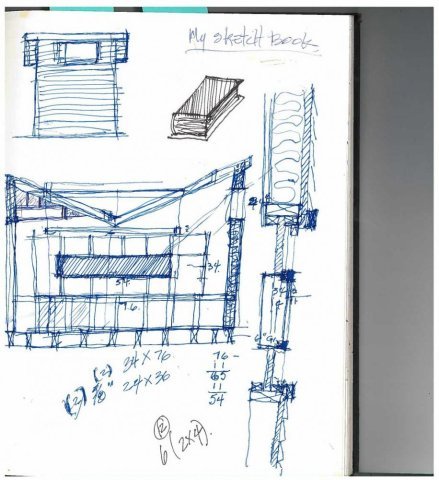 My sketch book
34
54
76
(2) 34 x 76
(2) 24 x 36
76 -
11
65
11
54
12
6 (2x4).